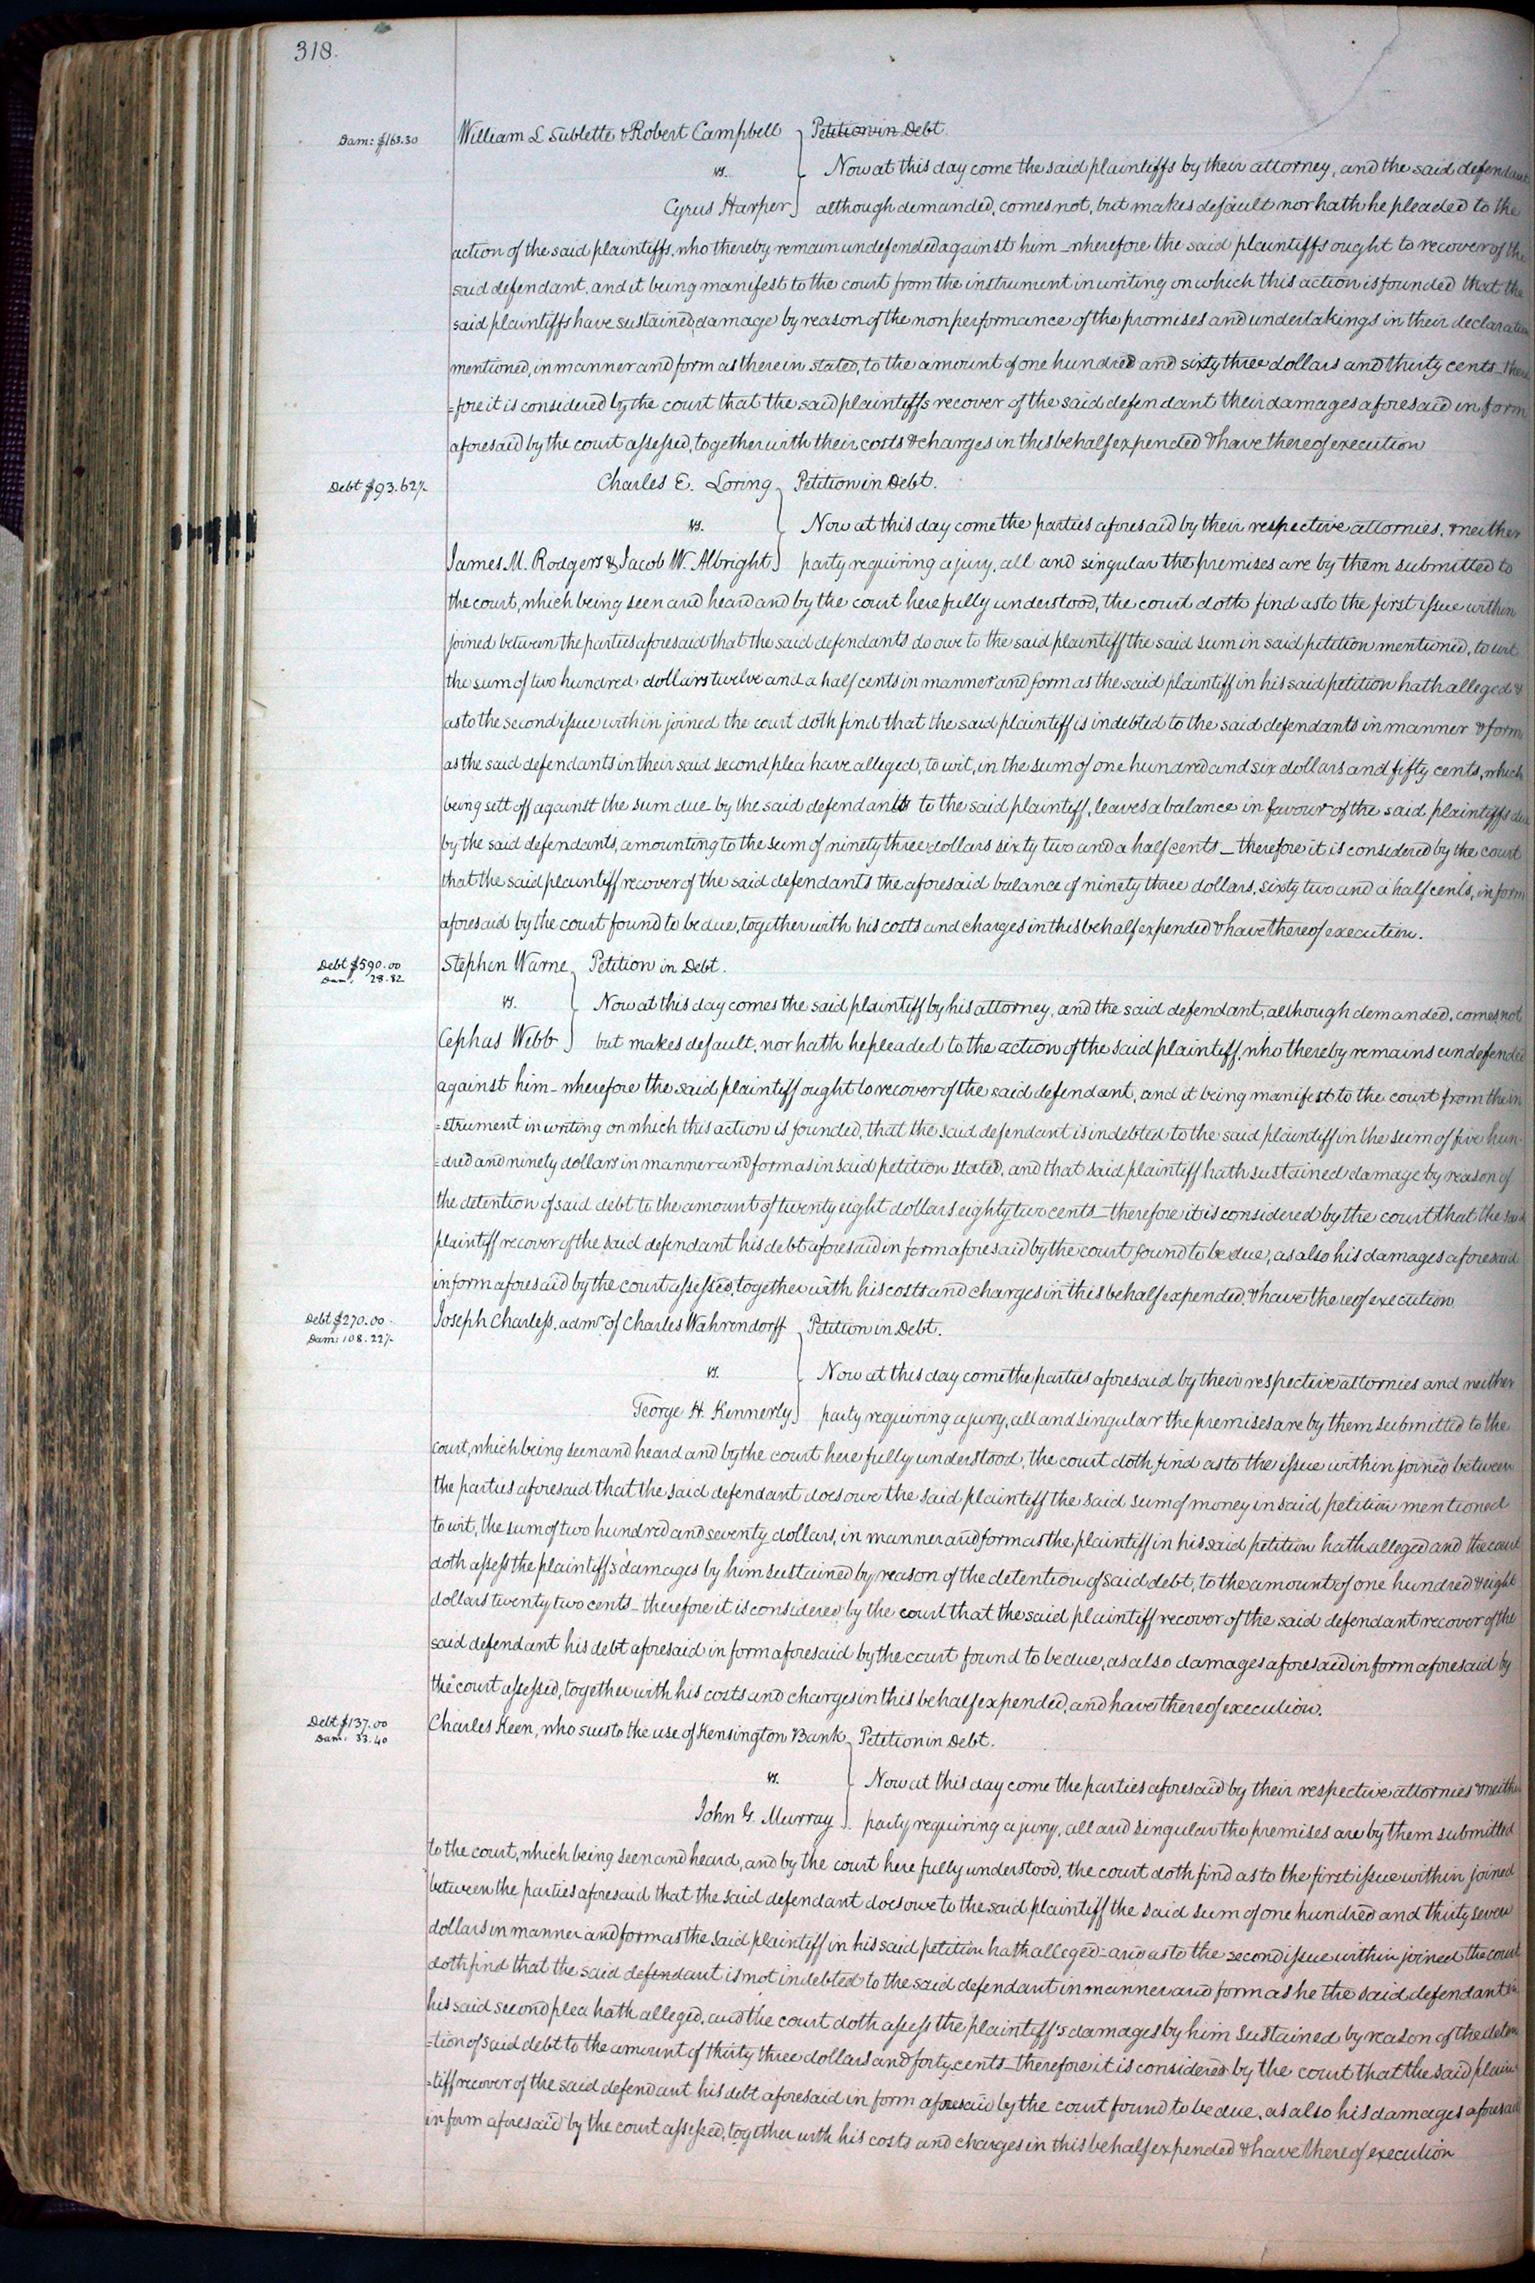 318.
Dam: $163.30
William L Sublette & Robert Campbell } Petition in Debt
vs. Now at this day come the said plaintiffs by their attorney, and the said defendant
Cyrus Harper although demanded, comes not, but makes default nor hath he pleaded to the
action of the said plaintiffs, who thereby remain undefended against him _ wherefore the said plaintiffs ought to recover of the
said defendant, and it being manifest to the court from the instrument in writing on which this action is founded that the
said plaintiffs have sustained damage by reason of the nonperformance of the promises and undertakings in their declaration
mentioned, in manner and form as therein stated, to the amount of one hundred and sixty three dollars and thirty cents _ there
=fore it is considered by the court that the said plaintiffs recover of the said defendant their damages aforesaid in form
aforesaid by the court assessed, together with their costs & charges in this behalf expended & have thereof execution
Debt $93.62½
Charles E. Loring } Petition in Debt.
vs. Now at this day come the parties aforesaid by their respective attornies, & neither
James M. Rodgers & Jacob W. Albright party requiring a jury, all and singular the premises are by them submitted to
the court, which being seen and heard and by the court here fully understood, the court doth find as to the first issue within
joined between the parties aforesaid that the said defendants do owe to the said plaintiff the said sum in said petition mentioned, to wit
the sum of two hundred dollars twelve and a half cents in manner and form as the said plaintiff in his said petition hath alleged &
as to the second issue within joined the court doth find that the said plaintiff is indebted to the said defendants in manner & form
as the said defendants in their said second plea have alleged, to wit, in the sum of one hundred and six dollars and fifty cents, which
being sett off against the sum due by the said defendants to the said plaintiff, leaves a balance in favour of the said plaintiffs due
by the said defendants, amounting to the sum of ninety three dollars sixty two and a half cents _ therefore it is considered by the court
that the said plaintiff recover of the said defendants the aforesaid balance of ninety three dollars, sixty two and a half cents, in form
aforesaid by the court found to be due, together with his costs and charges in this behalf expended & have thereof execution.
Debt $590.00
Dam: 28.82
Stephen Warne } Petition in Debt.
vs. Now at this day comes the said plaintiff by his attorney, and the said defendant, although demanded, comes not
Cephas Webb but makes default, nor hath he pleaded to the action of the said plaintiff, who thereby remains undefended
against him _ wherefore the said plaintiff ought to recover of the said defendant, and it being manifest to the court from the in
=strument in writing on which this action is founded, that the said defendant is indebted to the said plaintiff in the sum of five hun-
=dred and ninety dollars in manner and form as in said petition stated, and that said plaintiff hath sustained damage by reason of
the detention of said debt to the amount of twenty eight dollars eighty two cents _ therefore it is considered by the court that the said
plaintiff recover of the said defendant his debt aforesaid in form aforesaid by the court found to be due, as also his damages aforesaid
in form aforesaid by the court assessed, together with his costs and charges in this behalf expended, & have thereof execution
Debt $270.00
Dam: 108.22½
Joseph Charless, admr. of Charles Wahrendorff } Petition in Debt.
vs. Now at this day come the parties aforesaid by their respective attornies and neither
George H. Kennerly party requiring a jury, all and singular the premises are by them submitted to the
court, which being seen and heard and by the court here fully understood, the court doth find as to the issue within joined between
the parties aforesaid that the said defendant does owe the said plaintiff the said sum of money in said petition mentioned
to wit, the sum of two hundred and seventy dollars, in manner and form as the plaintiff in his said petition hath alleged and the court
doth assess the plaintiff's damages by him sustained by reason of the detention of said debt, to the amount of one hundred & eight
dollars twenty two cents _ therefore it is considered by the court that the said plaintiff recover of the said defendant recover of the
said defendant his debt aforesaid in form aforesaid by the court found to be due, as also damages aforesaid in form aforesaid by
the court assessed, together with his costs and charges in this behalf expended, and have thereof execution.
Debt $137.00
Dam: 33.40
Charles Keen, who sues to the use of Kensington Bank } Petition in Debt.
vs. Now at this day come the parties aforesaid by their respective attornies & neither
John G. Murray party requiring a jury, all and singular the premises are by them submitted
to the court, which being seen and heard, and by the court here fully understood, the court doth find as to the first issue within joined
between the parties aforesaid that the said defendant does owe to the said plaintiff the said sum of one hundred and thirty seven
dollars in manner and form as the said plaintiff in his said petition hath alleged = and as to the second issue within joined the court
doth find that the said defendant is not indebted to the said defendant in manner and form as he the said defendant in
his said second plea hath alleged, and the court doth assess the plaintiff's damages by him sustained by reason of the deten
=tion of said debt to the amount of thirty three dollars and forty cents _ therefore it is considered by the court that the said plain
=tiff recover of the said defendant his debt aforesaid in form aforesaid by the court found to be due, as also his damages aforesaid
in form aforesaid by the court assessed, together with his costs and charges in this behalf expended & have thereof execution